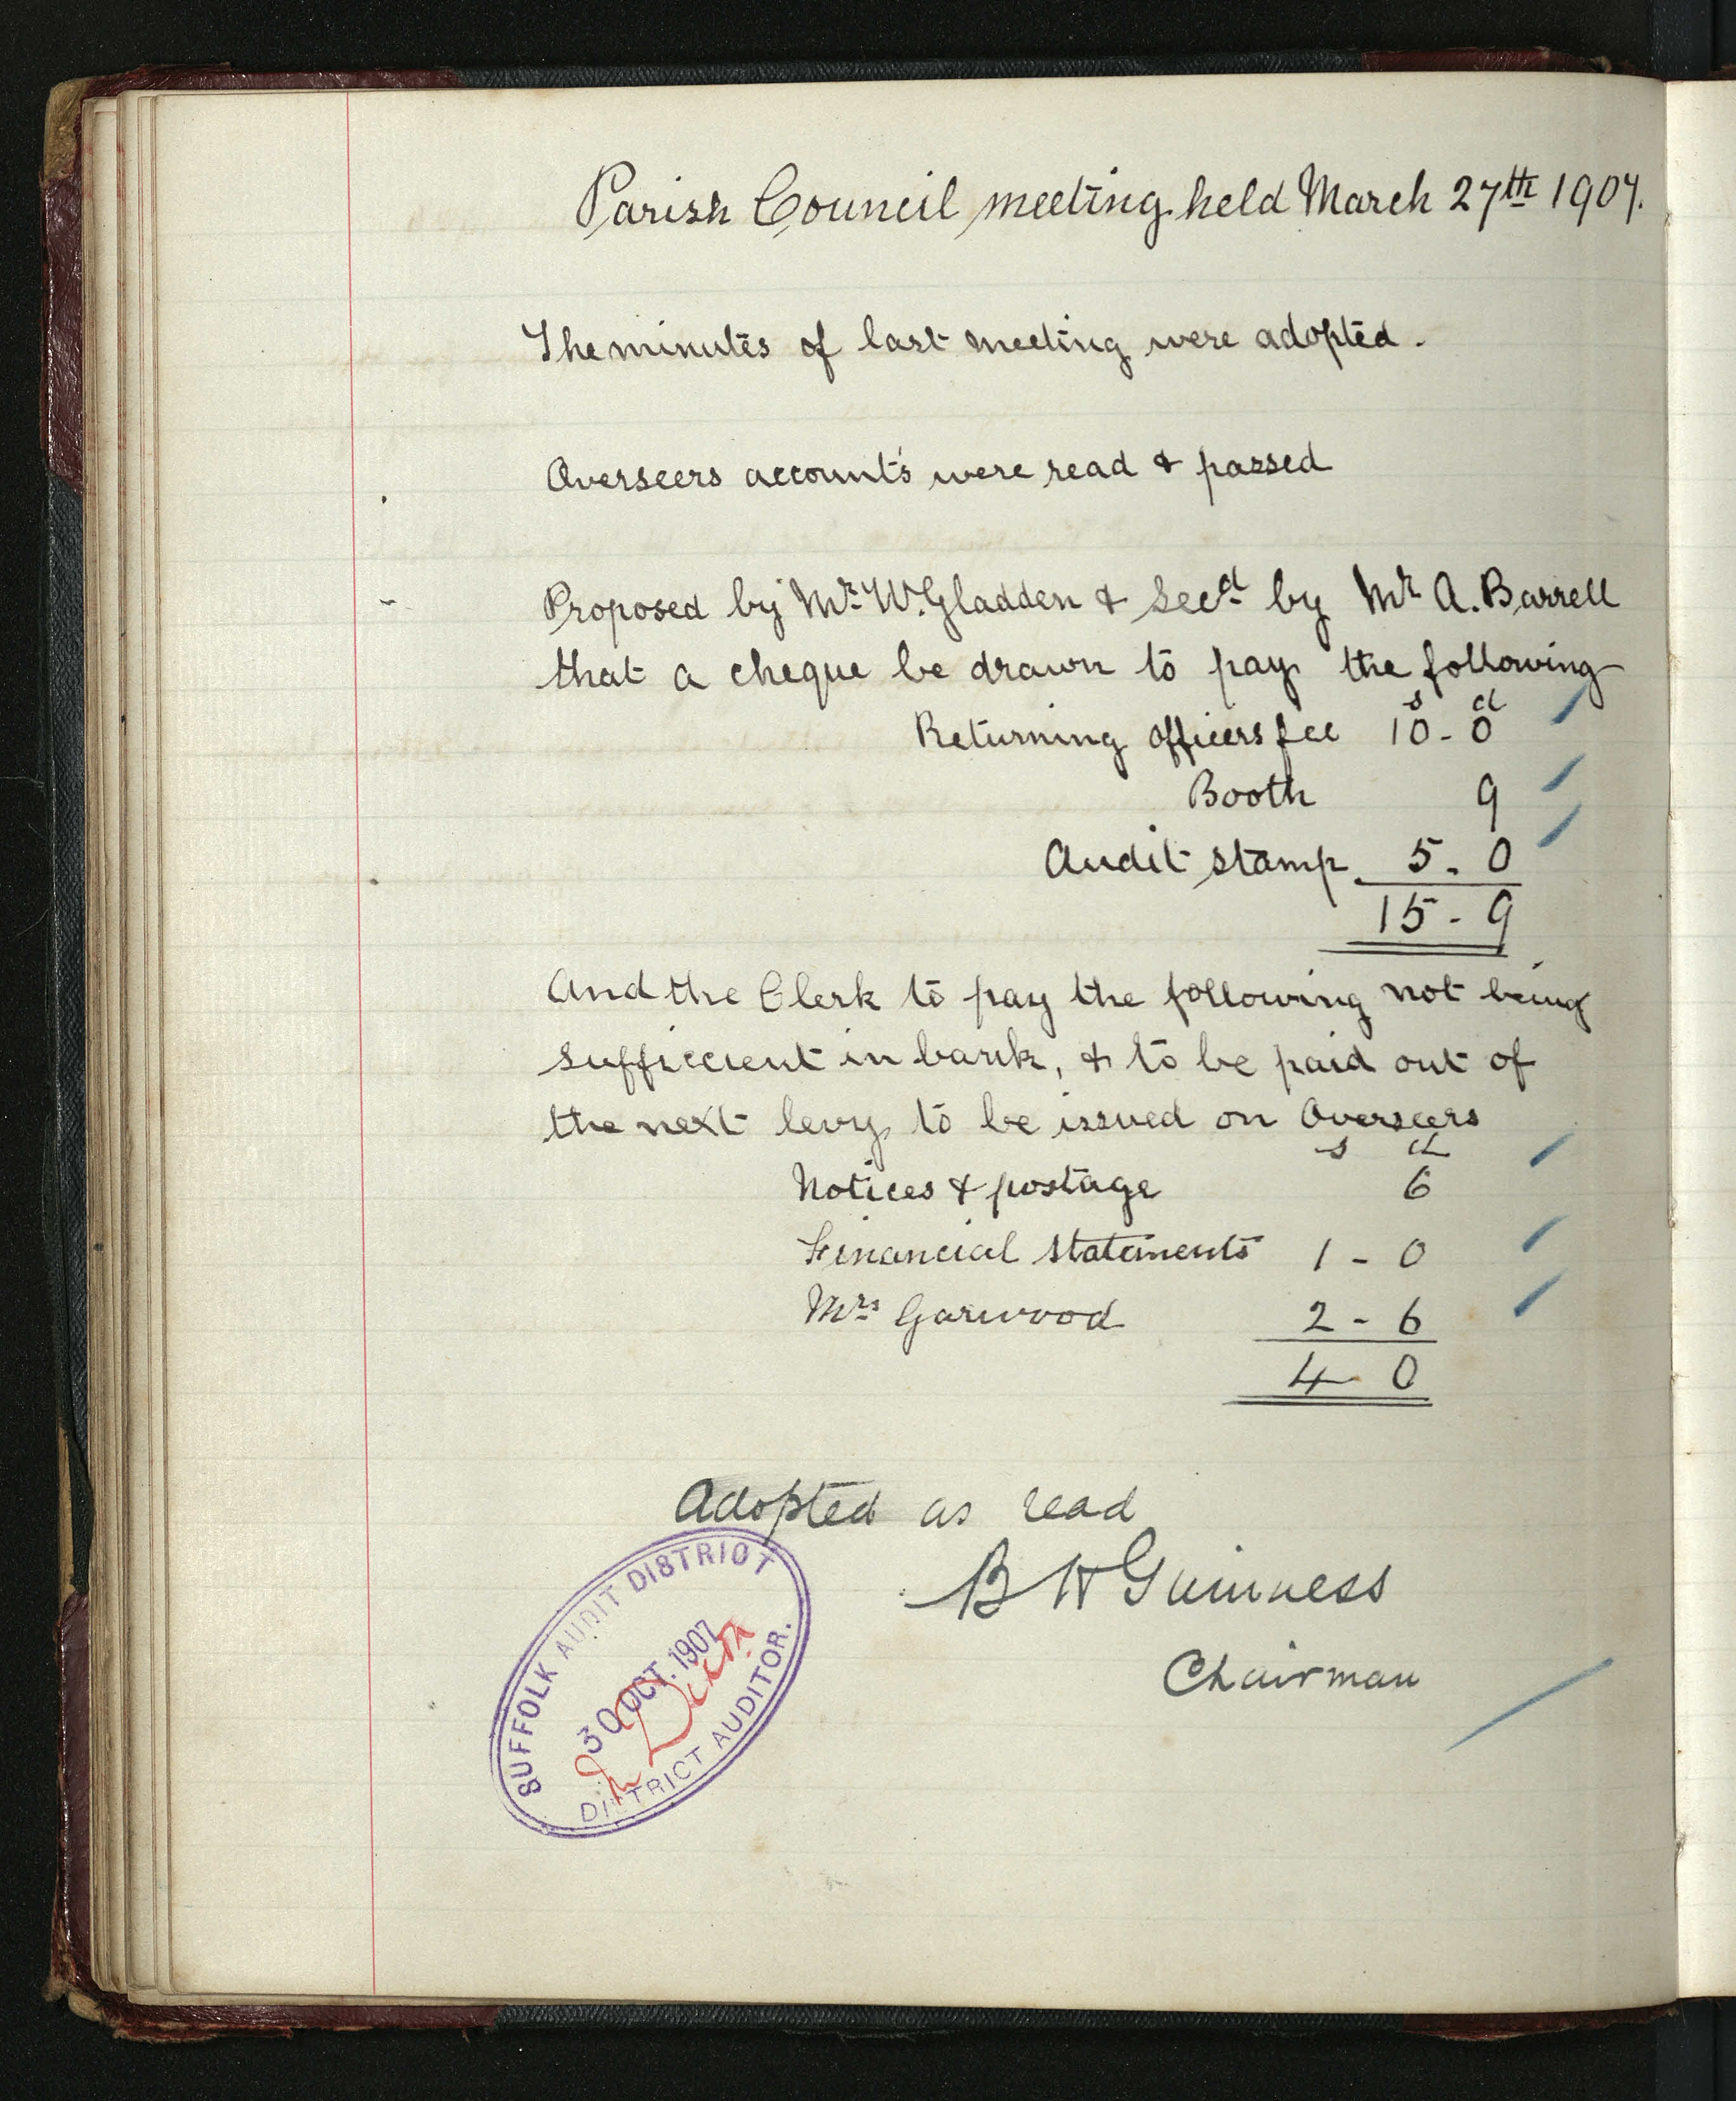 Parish Council meeting held March 27th 1907.
The minutes of last meeting were adopted.
Overseers accounts were read & passed
Proposed by Mr. W. Gladden & Secd by Mr A. Barrell
that a cheque be drawn to pay the following
s d
Returning officers fee 10 - 0
Booth 9
Audit stamp 5 - 0
15 - 9
And the Clerk to pay the following not being
sufficcient in bank, & to be paid out of
the next levy to be issued on Overseers
s d
Notices & postage 6
Financial statements 1 - 0
Mrs Garwood 2 - 6
4 - 0
Adopted as read
B H Guinness
Chairman
SUFFOLK AUDIT DISTRICT
30 OCT. 1907
DISTRICT AUDITOR.